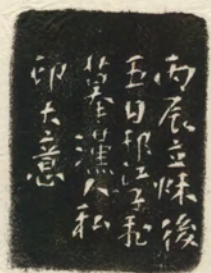 丙辰立秌後
五日邗江子
摹漢人私
印大意